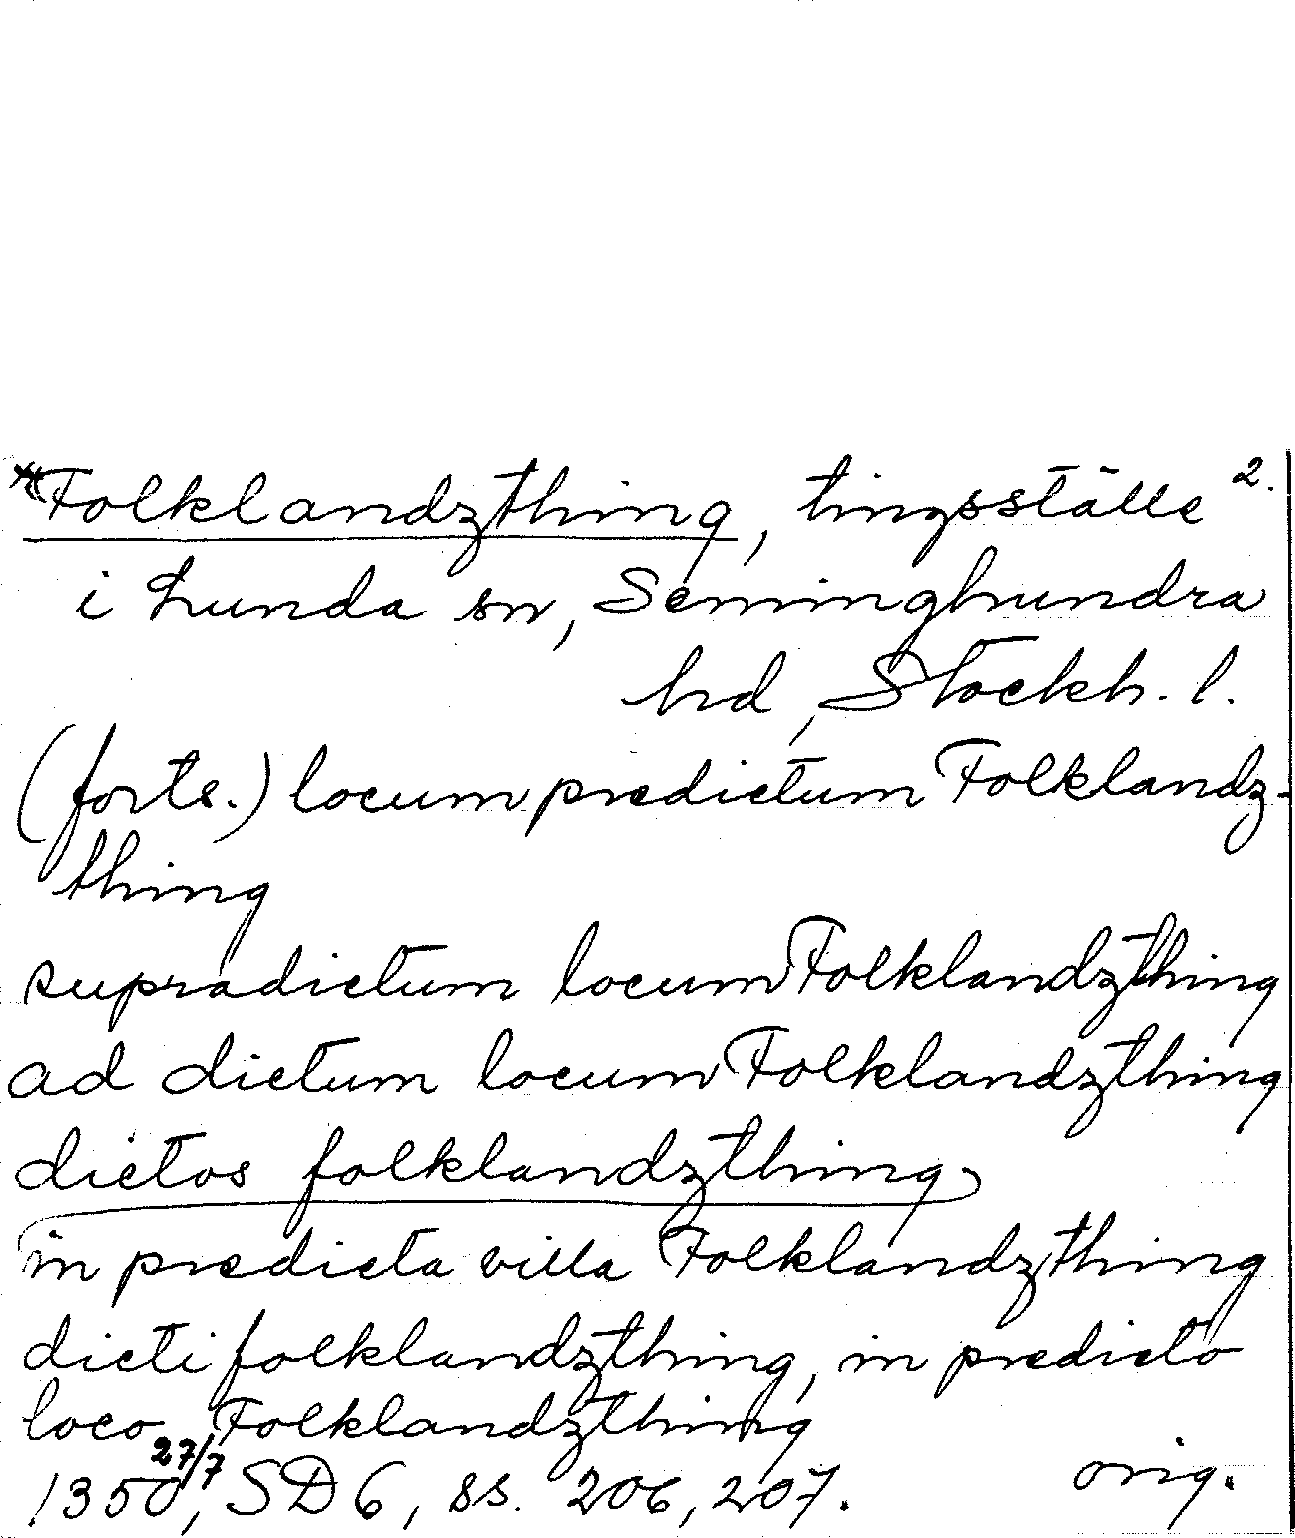 *Folklandzthing, tingsställe 2.
i Lunda sn, Seminghundra
hd, Stockh. l.
(forts.) locum predictum Folklandz-
thing
supradictum locum Folklandzthing
ad dictum locum Folklandzthing
dictos folklandzthing
in predicta villa Folklandzthing
dicti folklandzthing, in predicto
loco Folklandzthing
1350 27/7, SD 6, ss. 206, 207. orig.